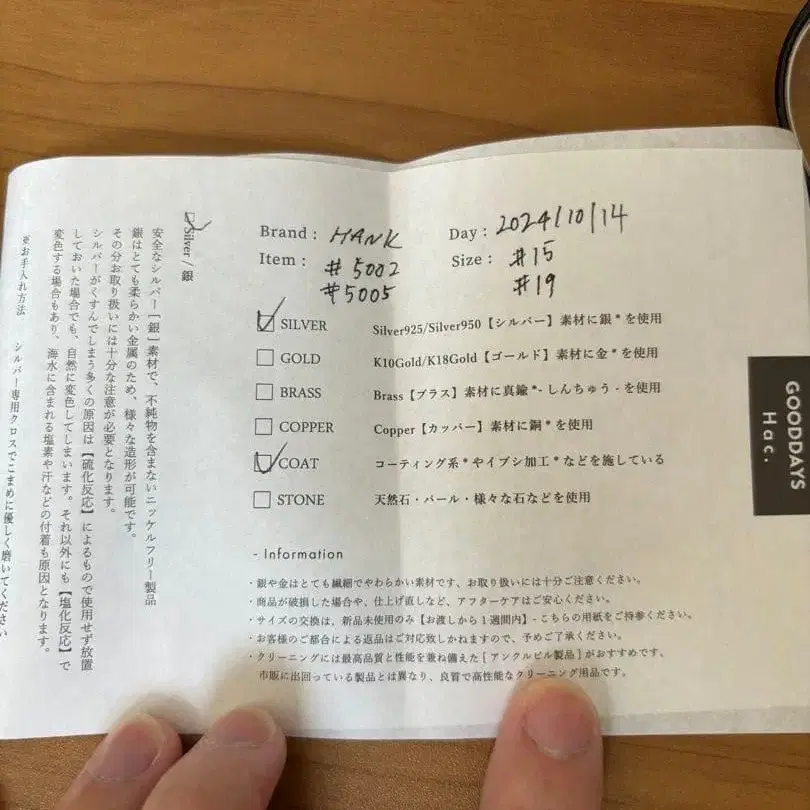 Brand : HANK
Day : 2024/10/14
Item : #5002
#5005
Size : #15
#19
SILVER Silver925/Silver950【シルバー】素材に銀*を使用
GOLD K10Gold/K18Gold【ゴールド】素材に金*を使用
BRASS Brass【ブラス】素材に真鍮*- しんちゅう - を使用
COPPER Copper【カッパー】素材に銅*を使用
COAT コーティング系*やイブシ加工*などを施している
STONE 天然石・パール・様々な石などを使用
- Information
・銀や金はとても繊細でやわらかい素材です、お取り扱いには十分ご注意ください。
・商品が破損した場合や、仕上げ直しなど、アフターケアはご安心ください。
・サイズの交換は、新品未使用のみ【お渡しから1週間内】- こちらの用紙をご持参ください。
・お客様のご都合による返品はご対応致しかねますので、予めご了承ください。
・クリーニングには最高品質と性能を兼ね備えた [ アンクルビル製品 ] がおすすめです。
市販に出回っている製品とは異なり、良質で高性能なクリーニング用品です。
Silver / 銀
安全なシルバー［銀］素材で、不純物を含まないニッケルフリー製品
銀はとても柔らかい金属のため、様々な造形が可能です。
その分お取り扱いには十分な注意が必要となります。
シルバーがくすんでしまう多くの原因は【硫化反応】によるもので使用せず放置
しておいた場合でも、自然に変色してしまいます。それ以外にも【塩化反応】で
変色する場合もあり、海水に含まれる塩素や汗などの付着も原因となります。
※お手入れ方法 シルバー専用クロスでこまめに優しく磨いてください
GOODDAYS
Hac.